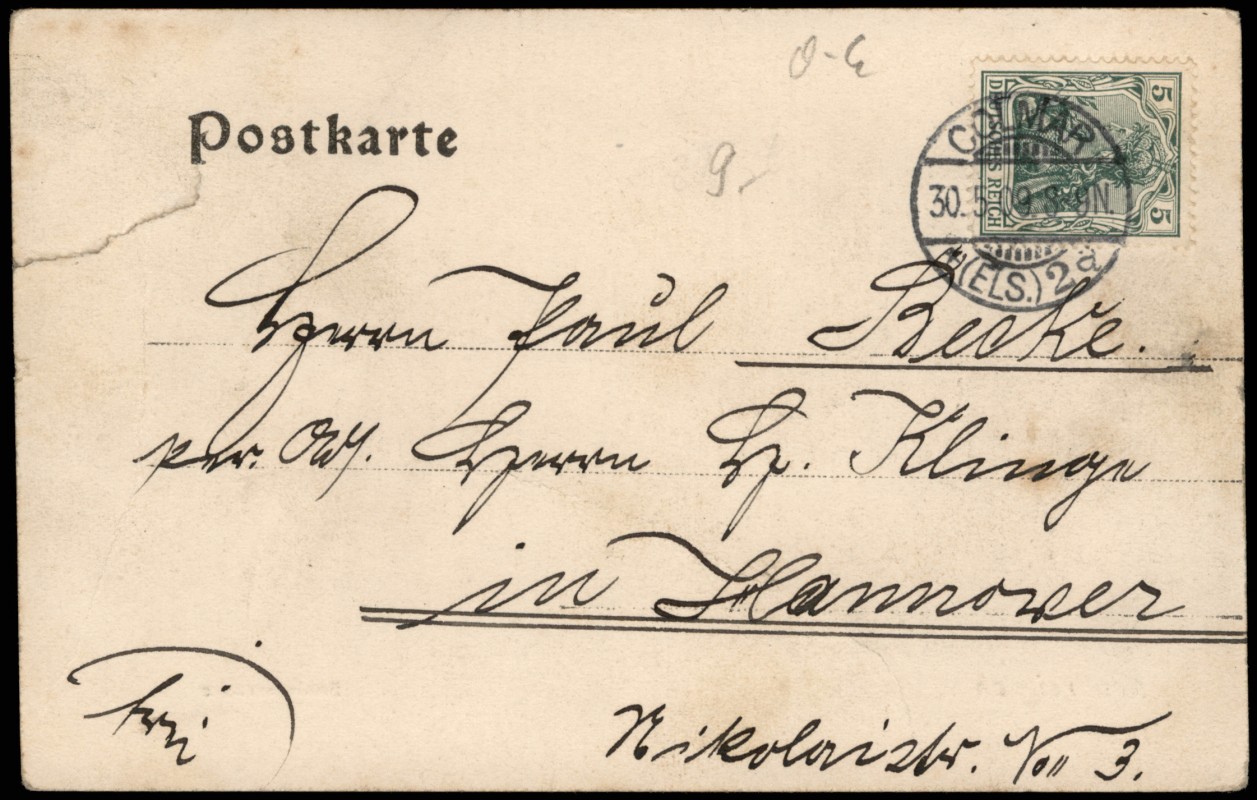 O-E
Postkarte
9.-
5 DEUTSCHES REICH 5
COLMAR
30.5.09.8-9N.
*(ELS.) 2a
Herrn Paul Becke.
per. Adr. Herrn Hr. Klinge
in Hannover
frei
Nikolaistr. No 3.